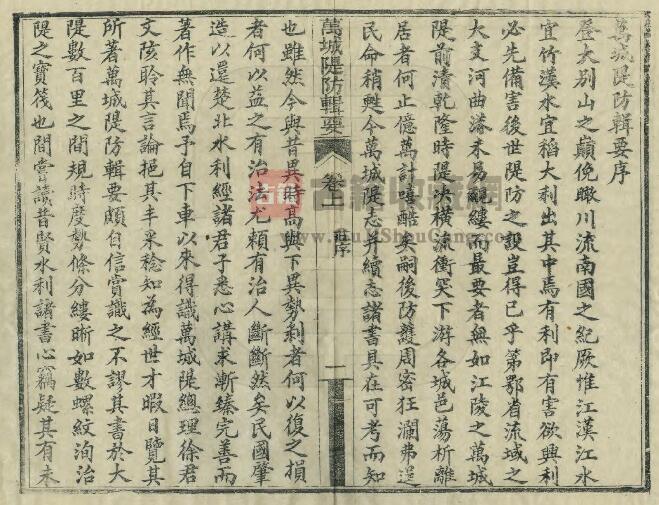 萬城隄防輯要序
登大别山之巔俛瞰川流南國之紀厥惟江漢江水
宜竹漢水宜稻大利出其中焉有利卽有害欲興利
必先備害後世隄防之設豈得已乎第鄂省流域之
大支河曲港未易覼縷而最要者無如江陵之萬城
隄前清乾隆時隄決橫流衝突下游各城邑蕩析離
居者何止億萬計嘻酷矣嗣後防護周密狂瀾弗逞
民命稍甦今萬城隄志并續志諸書具在可考而知
萬城隄防輯要
卷上
序
一
也雖然今與昔異時高與下異勢剩者何以復之損
者何以益之有治法尤賴有治人斷斷然矣民國肇
造以還楚北水利經諸君子悉心講求漸臻完善而
著作無聞焉予自下車以來得識萬城隄總理徐君
文陔聆其言論挹其丰采稔知為經世才暇日覽其
所著萬城隄防輯要頗自信賞識之不謬其書於大
隄數百里之間規時度勢條分縷晰如數螺紋洵治
隄之寶筏也間嘗讀昔賢水利諸書心竊疑其有未